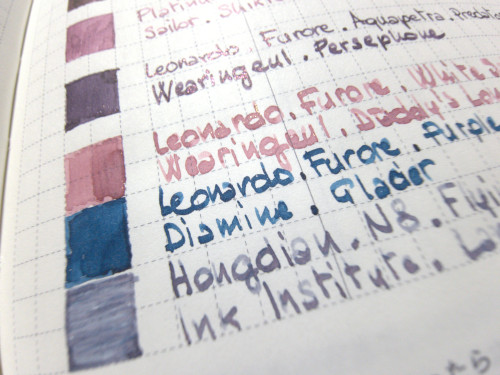 Platinum
Sailor . Shikiori
Leonardo . Furore . Aquapetra .
Wearingeul . Persephone
Leonardo . Furore . White
Wearingeul . Daddy's
Leonardo . Furore . Purple
Diamine . Glacier
Hongdian . N8 .
Ink Institute .